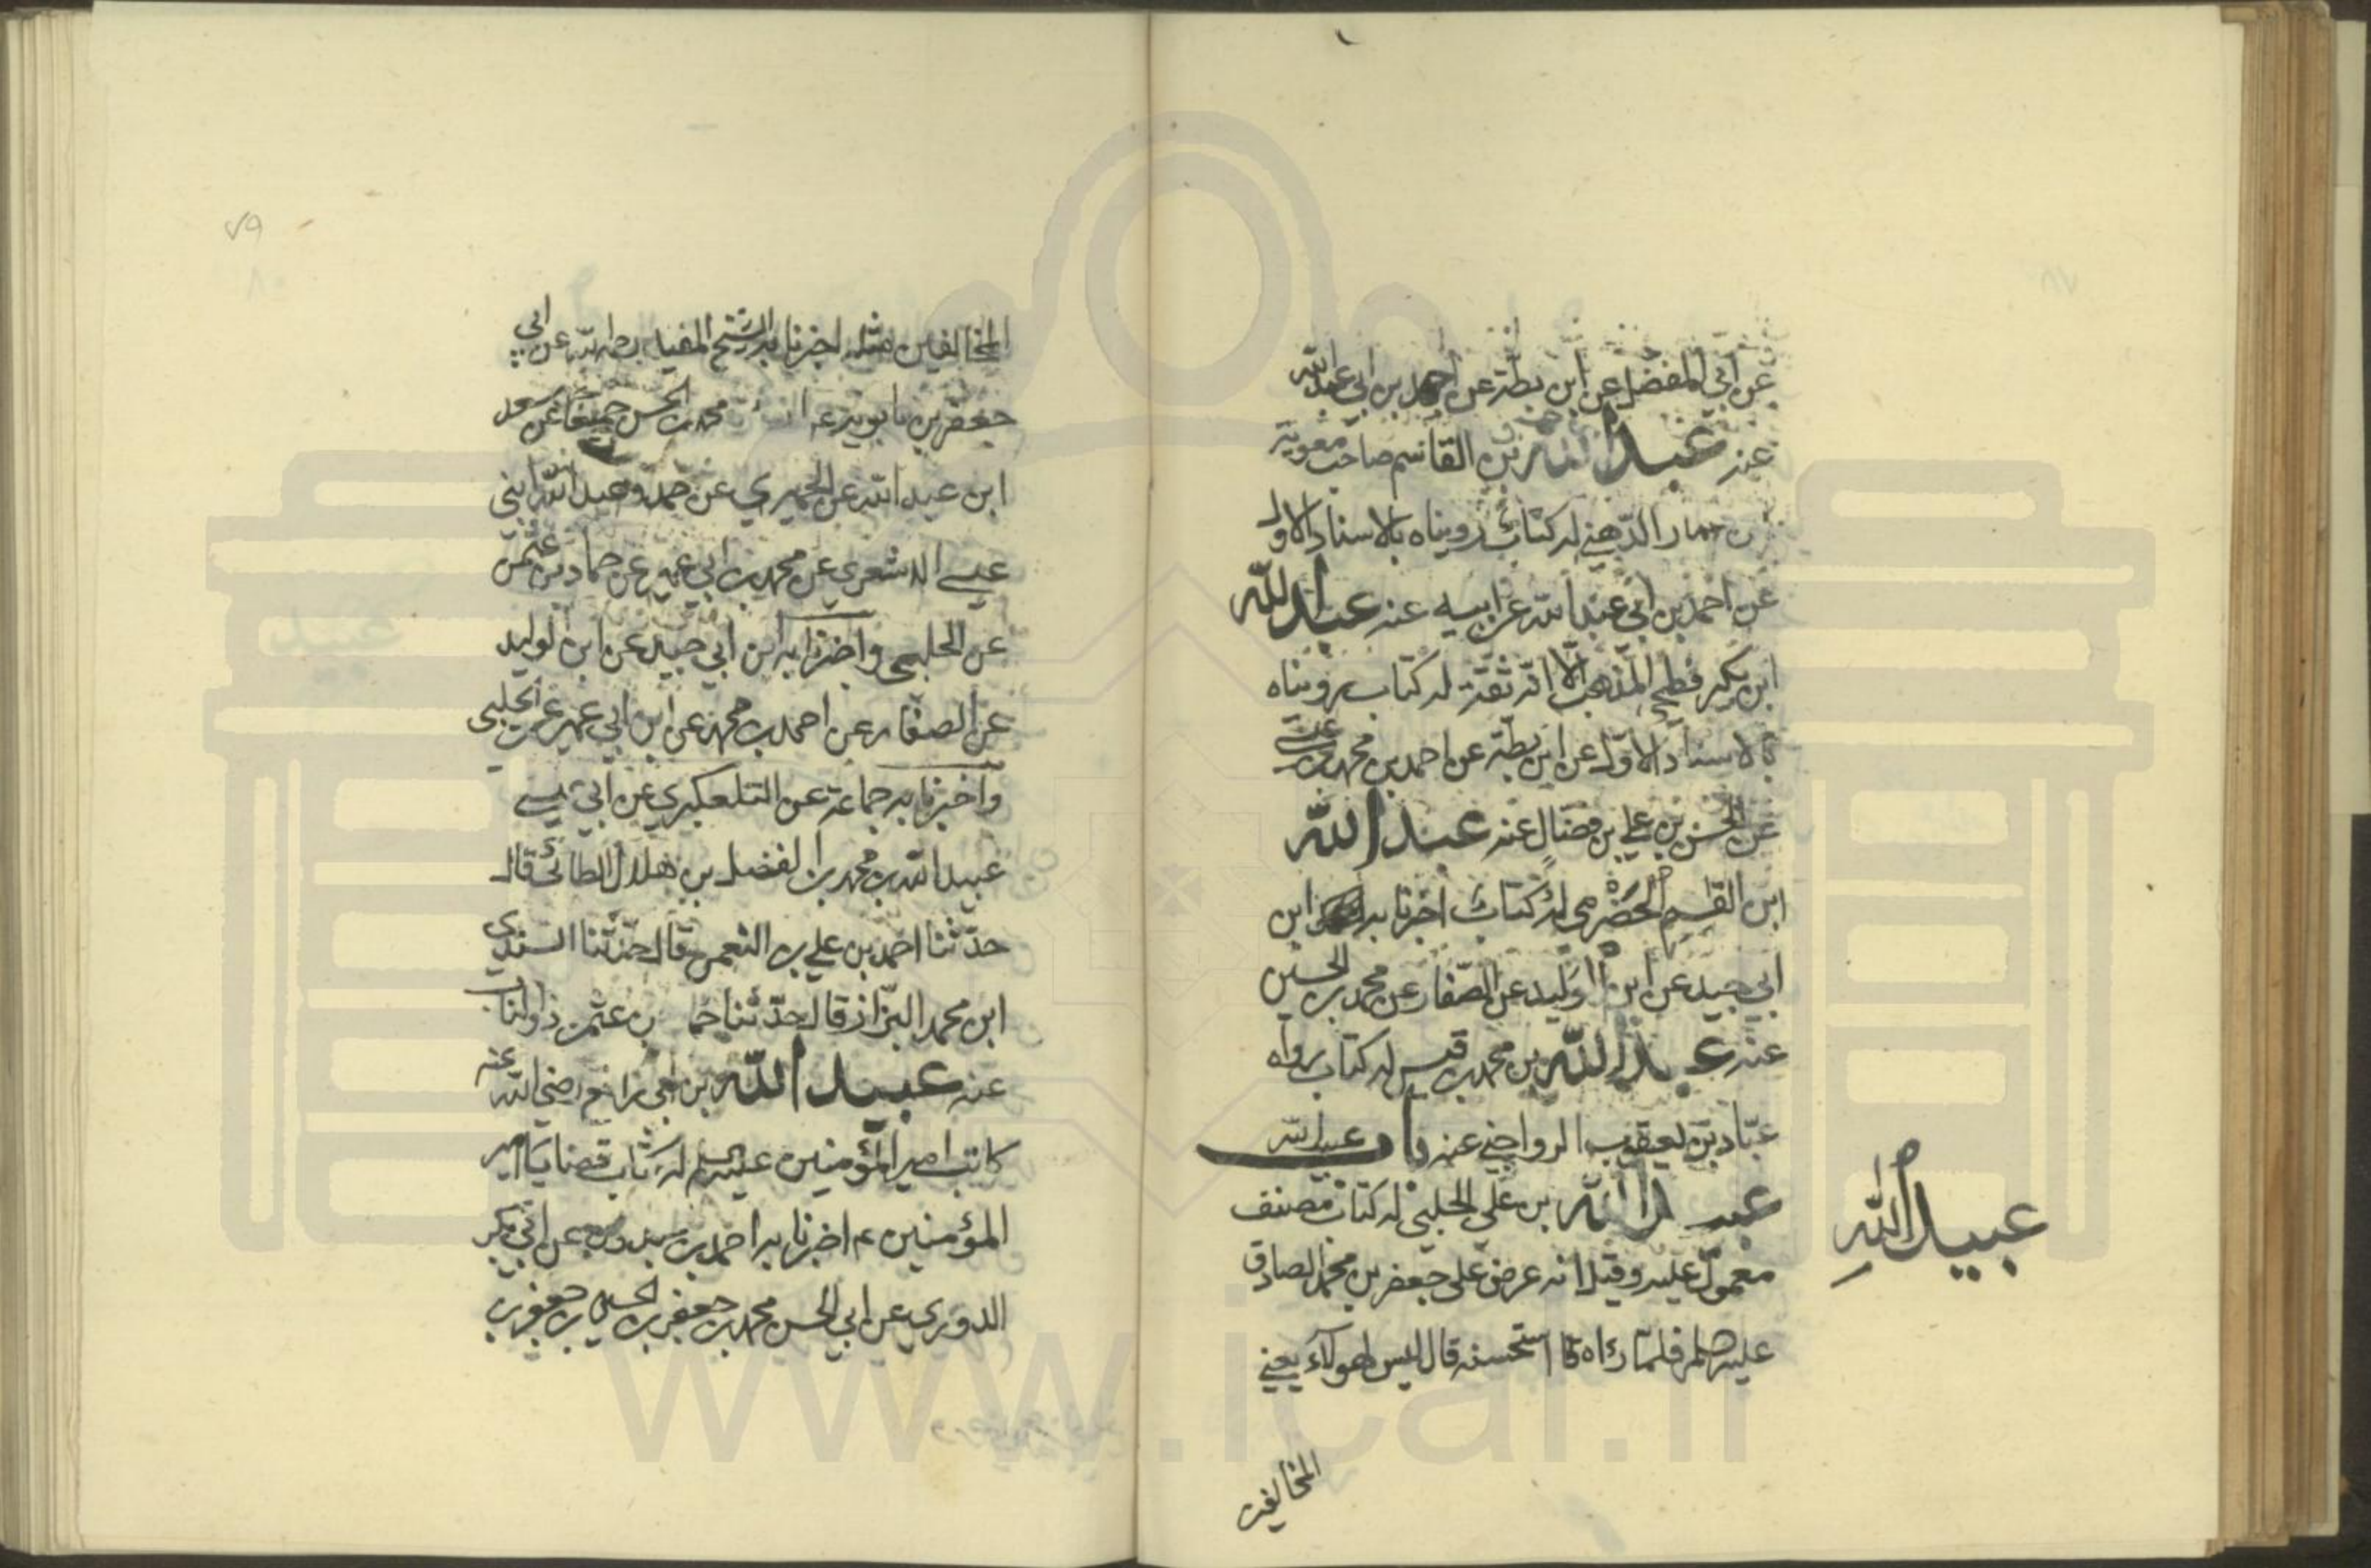 عن ابي المفضل عن ابن بطة عن احمد بن ابي عبدالله
عنه عبدالله بن القاسم صاحب معوية
بن عمار الدهني له كتاب رويناه بالاسناد الاول
عن احمد بن ابي عبدالله عن ابيه عنه عبدالله
ابن بكير فطحي المذهب الا انه ثقة له كتاب رويناه
بالاسناد الاول عن ابن بطة عن احمد بن محمد بن عيسى
عن الحسن بن علي بن فضال عنه عبدالله
ابن القسم الحضرمي له كتاب اخبرنا به ابن
ابي جيد عن ابن الوليد عن الصفار عن محمد بن الحسين
عنه عبدالله بن محمد بن قيس له كتاب رواه
عباد بن يعقوب الرواجني عنه باب عبيدالله
عبيدالله
عبيد الله بن علي الحلبي له كتاب مصنف
معمول عليه وقيل انه عرض على جعفر بن محمد الصادق
عليه السلم فلما رءاه استحسنه قال ليس لهولآء يعني
المخالفين
٧٩
المخالفين مثله اخبرنا به الشيخ المفيد رحمه الله عن ابي
جعفر بن بابويه عن محمد بن الحسن جميعا عن سعد
ابن عبدالله عن الحميري عن احمد وعبدالله ابني
عيسى الاشعري عن محمد بن ابي عمير عن حماد بن عثمن
عن الحلبي واخبرنا به ابن ابي جيد عن ابن الوليد
عن الصفار عن احمد بن محمد عن ابن ابي عمير عن الحلبي
واخبرنا به جماعة عن التلعكبري عن ابي عيسى
عبيدالله بن محمد بن الفضل بن هلال الطائي قال
حدثنا احمد بن علي بن النعمن قال حدثنا السندي
ابن محمد البزاز قال حدثنا حما بن عثمن ذو الناب
عنه عبيد الله بن ابي رافع رضي الله عنه
كاتب امير المؤمنين عليه السلم له كتاب قضايا امير
المؤمنين ع اخبرنا به احمد بن عبدون عن ابي بكر
الدوري عن ابي الحسن محمد بن جعفر بن الحسين بن جعفر بن
www.ical.ir